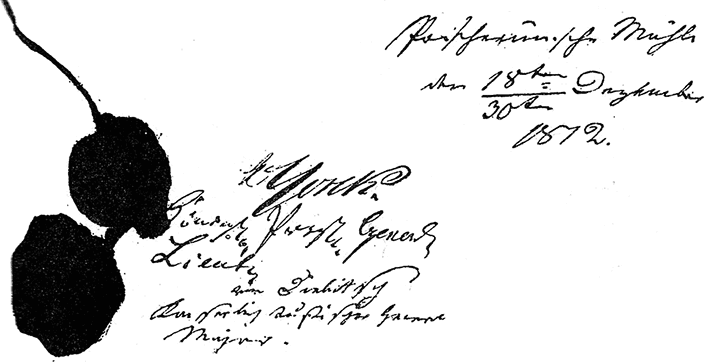 Poscherunsche Mühle
den 18ten
30ten Dezember
1812.
v. Yorck.
Königl. Preuß. General
Lieut.
von Diebitsch
Kaiserlich russischer General
Major.